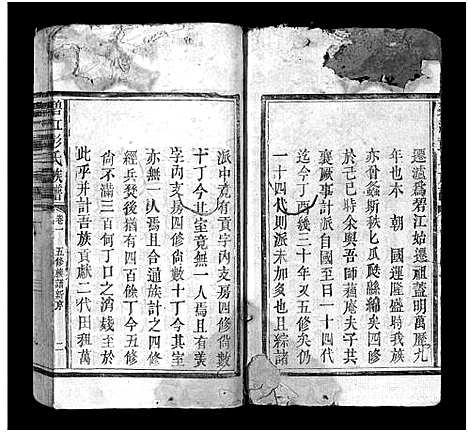 遷瀘爲碧江始遷祖蓋明萬歷九
年也本　朝　國運隆盛時我族
亦晉螽斯秩匕瓜瓞綿綿矣四修
於己巳時余與吾師藕庵夫子共
襄厥事計派自國至日一十四代
迄今丁酉幾三十年又五修矣仍
一十四代則派未加多也且綜諸
派中竟有貢字內支房四修尙數
十丁今其室竟無一人焉且有美
字內支房四修尙數十丁今其室
亦無一人焉且合通族計之四修
經兵燹後猶有四百餘丁今五修
尙不滿三百何丁口之消殘至於
此乎并計吾族貢獻二代田租萬
碧江彭氏族譜
卷一
五修族譜新序
二